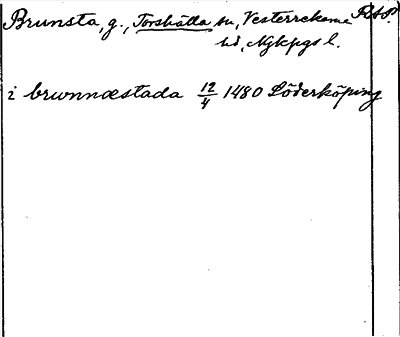 Brunsta, g., Torshälla sn, Vesterrekarne RAP.
hd, Nykpgs l.
i brwnnæstada 12/4 1480 Söderköping